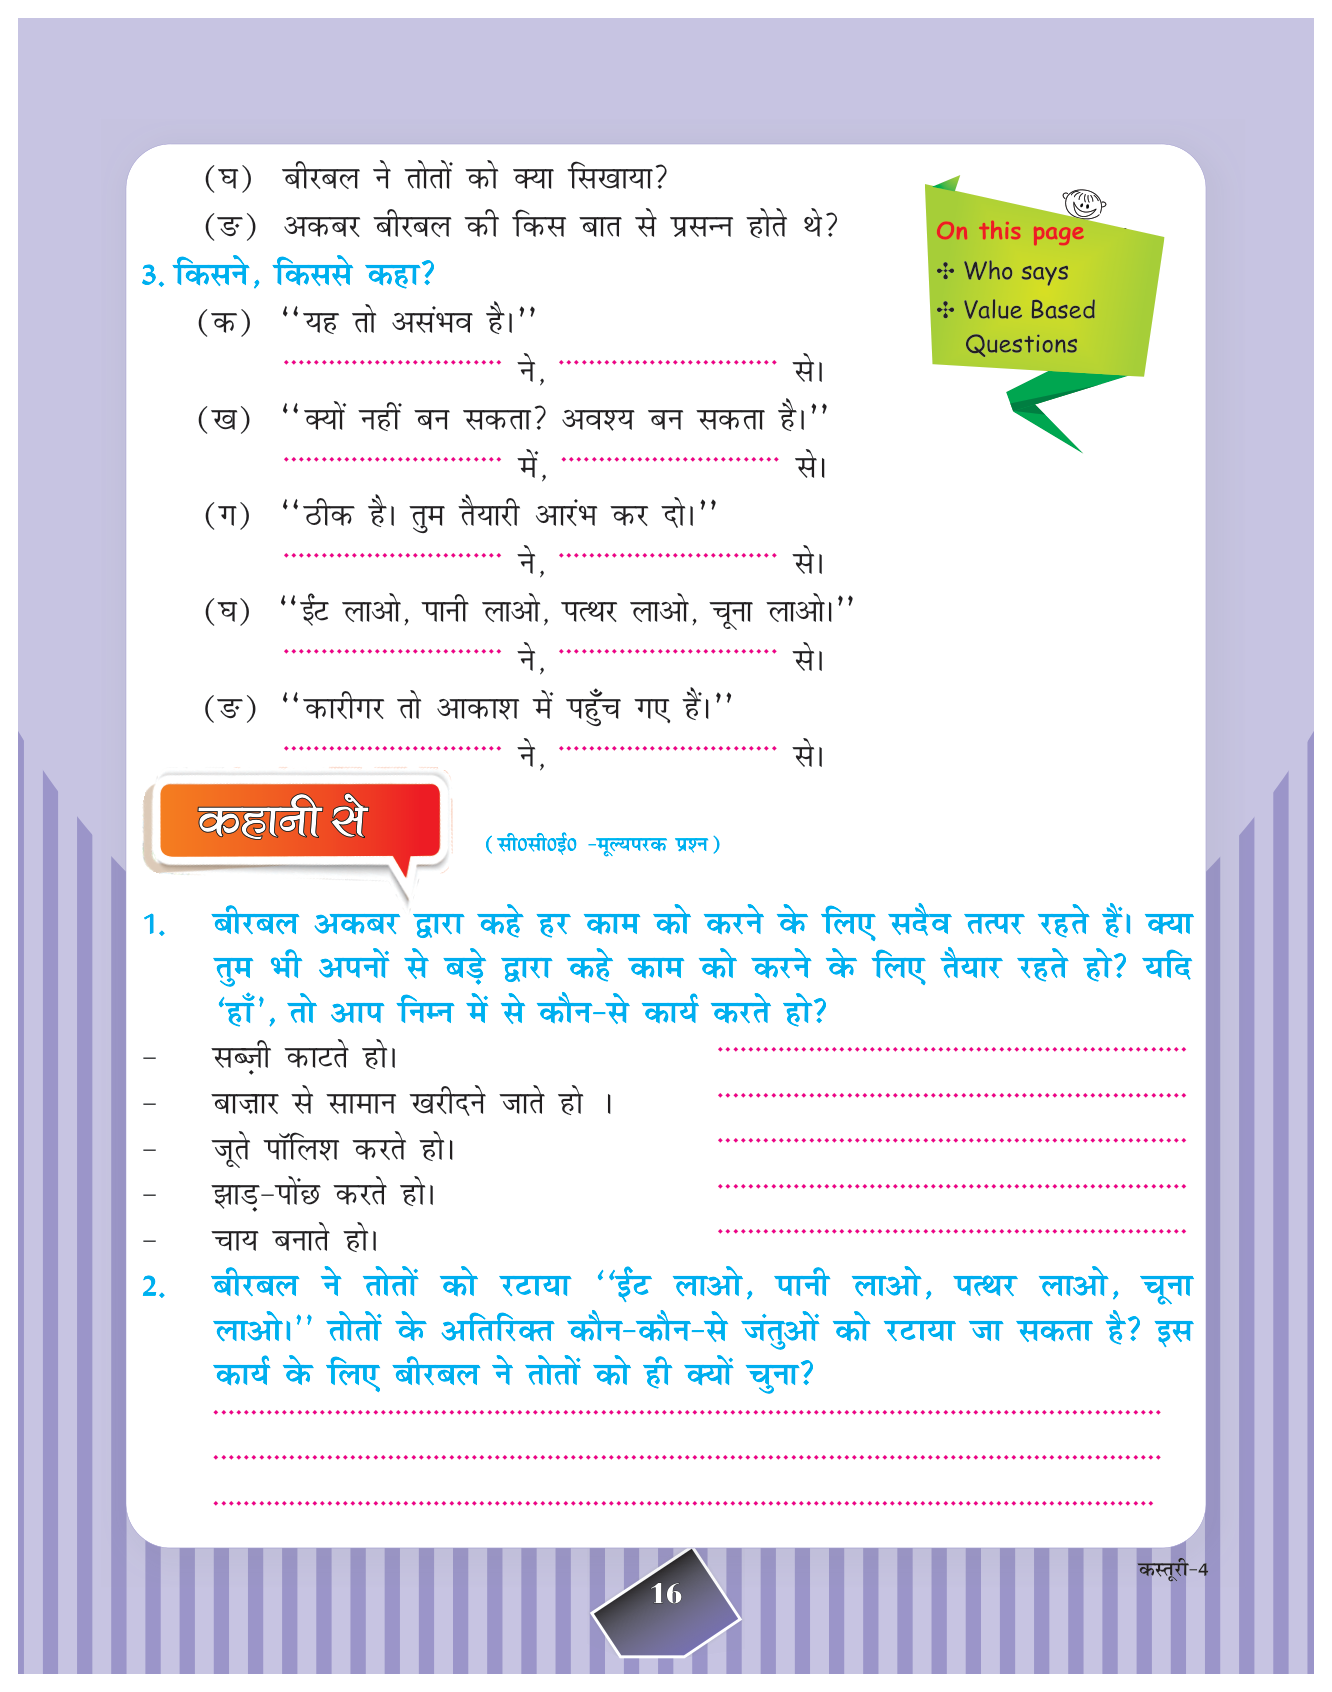 (घ) बीरबल ने तोतों को क्या सिखाया?
(ङ) अकबर बीरबल की किस बात से प्रसन्न होते थे?
On this page
✣ Who says
✣ Value Based
Questions
3. किसने, किससे कहा?
(क) ‘‘यह तो असंभव है।’’
........................... ने, ........................... से।
(ख) ‘‘क्यों नहीं बन सकता? अवश्य बन सकता है।’’
........................... में, ........................... से।
(ग) ‘‘ठीक है। तुम तैयारी आरंभ कर दो।’’
........................... ने, ........................... से।
(घ) ‘‘ईंट लाओ, पानी लाओ, पत्थर लाओ, चूना लाओ।’’
........................... ने, ........................... से।
(ङ) ‘‘कारीगर तो आकाश में पहुँच गए हैं।’’
........................... ने, ........................... से।
कहानी से
(सी0सी0ई0 -मूल्यपरक प्रश्न)
1. बीरबल अकबर द्वारा कहे हर काम को करने के लिए सदैव तत्पर रहते हैं। क्या
तुम भी अपनों से बड़े द्वारा कहे काम को करने के लिए तैयार रहते हो? यदि
‘हाँ’, तो आप निम्न में से कौन-से कार्य करते हो?
– सब्ज़ी काटते हो। ...........................
– बाज़ार से सामान खरीदने जाते हो । ...........................
– जूते पॉलिश करते हो। ...........................
– झाड़-पोंछ करते हो। ...........................
– चाय बनाते हो। ...........................
2. बीरबल ने तोतों को रटाया ‘‘ईंट लाओ, पानी लाओ, पत्थर लाओ, चूना
लाओ।’’ तोतों के अतिरिक्त कौन-कौन-से जंतुओं को रटाया जा सकता है? इस
कार्य के लिए बीरबल ने तोतों को ही क्यों चुना?
...........................
...........................
...........................
16
कस्तूरी-4